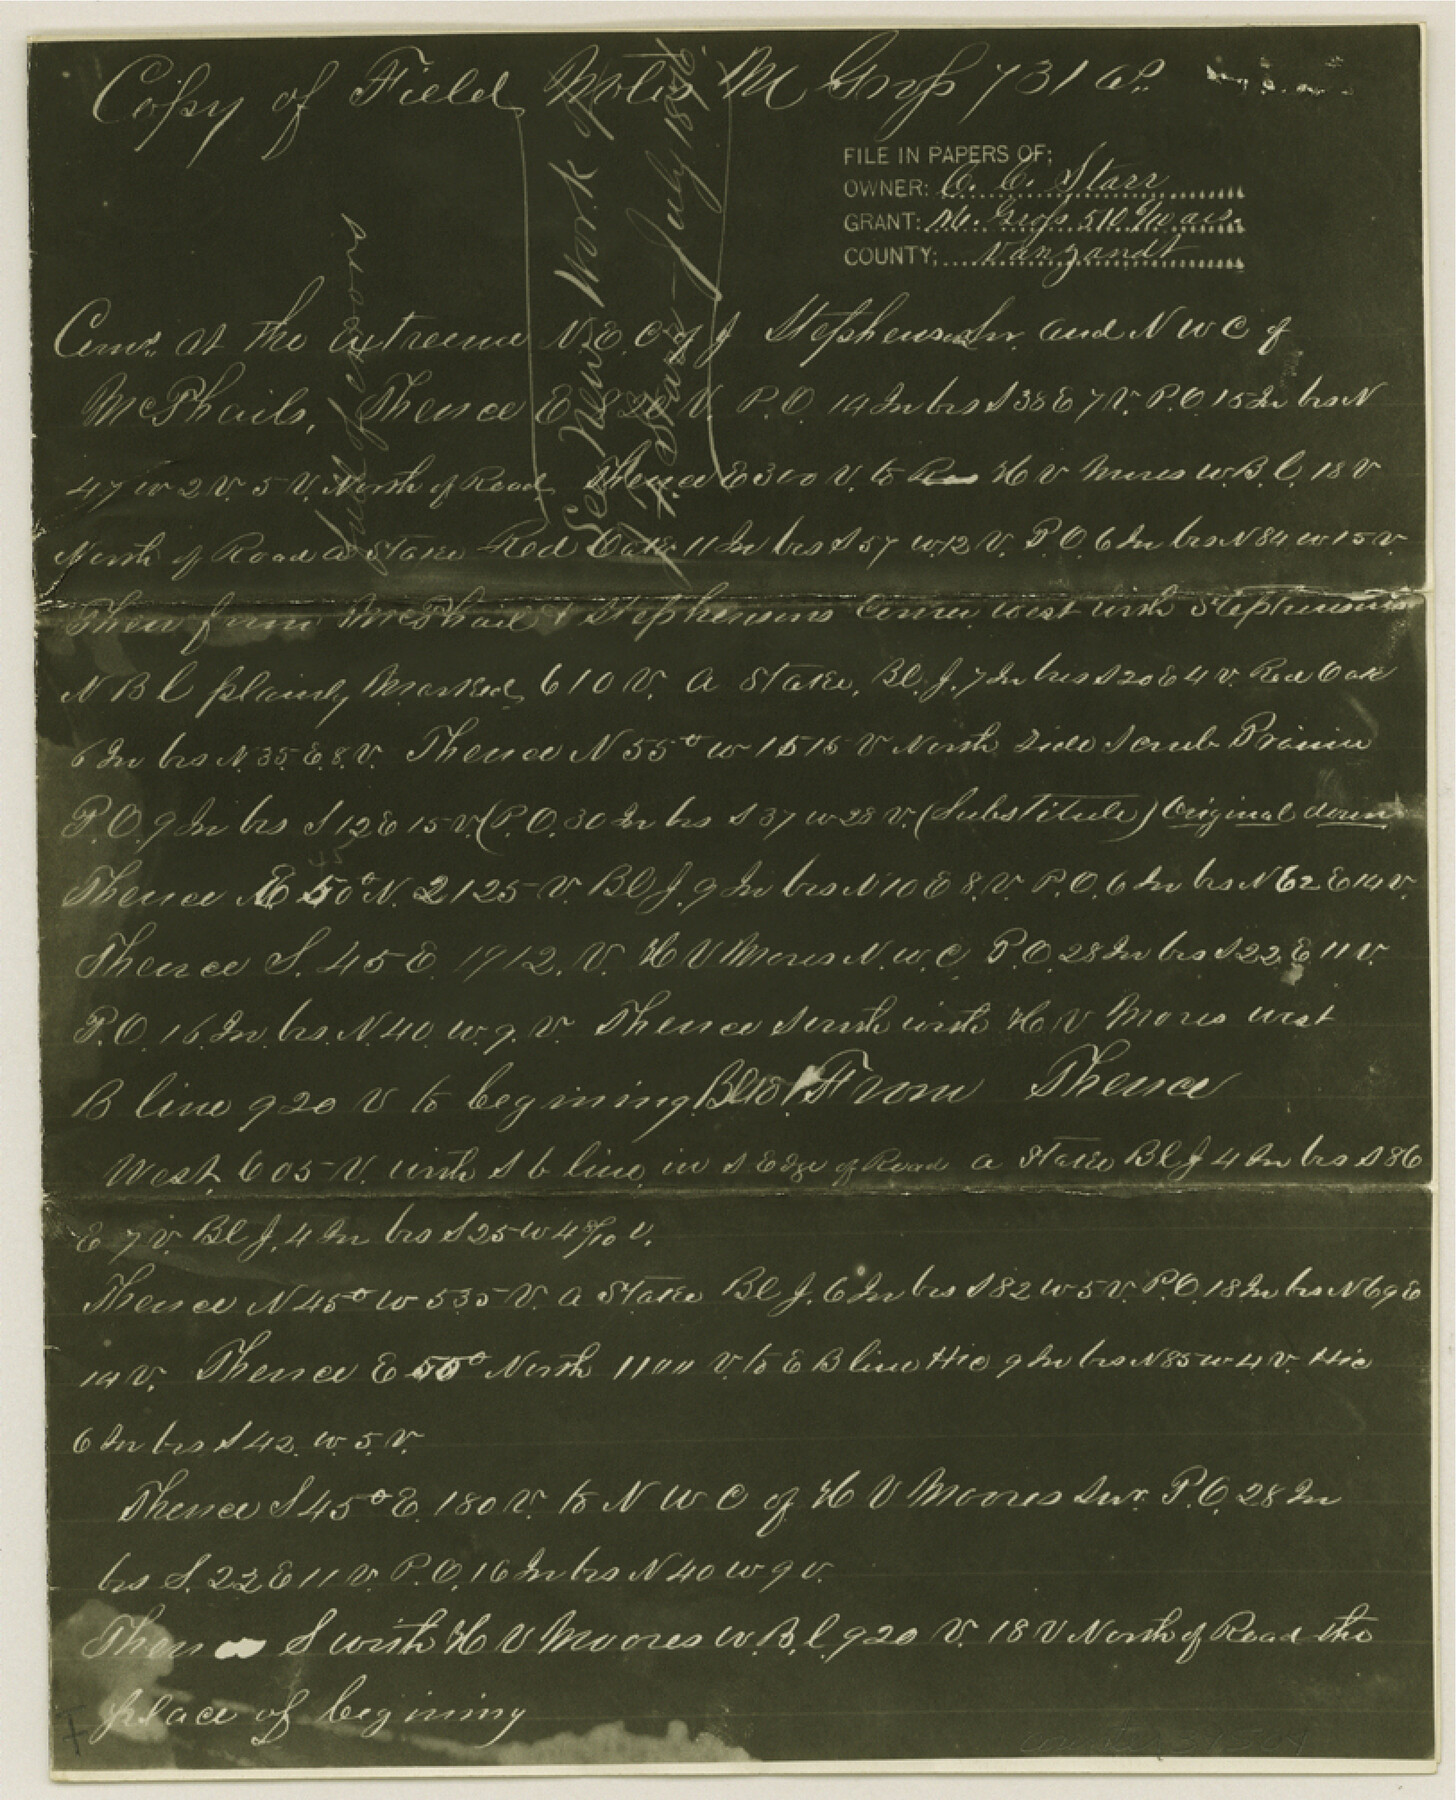 Copy of Field Notes M Gross 731 as.
FILE IN PAPERS OF;
OWNER: C. C. Starr
GRANT: M. Gross 510 6/10 acs.
COUNTY; Vanzandt
See New Work of
J Starr July 18
full of errors
Coms. at the Extreeme N.E. C of J Stephens Sur. and N W C of
McPhails, Thence E 820 V. P.O. 14 In brs S 38 E 7 V. P.O 15 In brs N
47 W 2 V. 5 V. North of Road Thence E 300 V. to H V Mores W.B.l. 18 V
North of Road a Stake Red Oak 11 In brs S 57 W 12 V. P.O. 6 In brs N 84 W 15 V.
Then from McPhail & Stephensons Corner west with Stephensons
N B l plainly Marked 610 V. a Stake, Bl. J. 7 In brs S 20 E 4 V. Red Oak
6 In brs N. 35 E. 8 V. Thence N 55° W 1515 V North Side Scrub Prairie
P.O. 9 In brs S 12 E 15 V. (P.O. 30 In brs S 37 W 28 V. (Substitute) Original down
45
Thence E 50° N. 2125 V. Bl J. 9 In brs N 10 E 8. V. P.O. 6 In brs N 62 E 14 V.
Thence S. 45 E. 1912. V. H V Mores N. W. C. P.O. 28 In brs S 22 E 11 V.
P.O. 16 In. brs. N. 40. W. 9. V. Thence South with H V Mores west
B line 920 V to begining. From Thence
West, 605 V. with S b line in S Edge of Road a Stake Bl J 4 In brs S 86
E 7 V. Bl J. 4 In brs S 25 W 4 8/10 V.
Thence N 45° W 535 V. a Stake Bl J. 6 In brs S 82 W 5 V. P.O. 18 In brs N 69 E
14 V. Thence E 50° North 1100 V. to E B line Hic 9 In brs N 85 W 4 V. Hic
6 In brs S 42. W. 5. V.
Thence S 45° E. 180 V. to N W C of H V Moores Sur. P.O. 28 In
brs S. 22 E 11 V. P.O. 16 In brs N 40 W 9 V.
Then S with H V Moores W. B. l. 920 V. 18 V North of Road the
place of begining